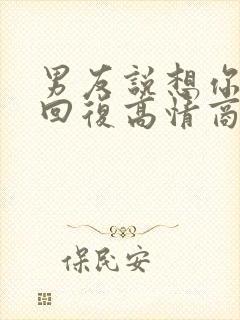 男友說想你
回復高情商
保民安